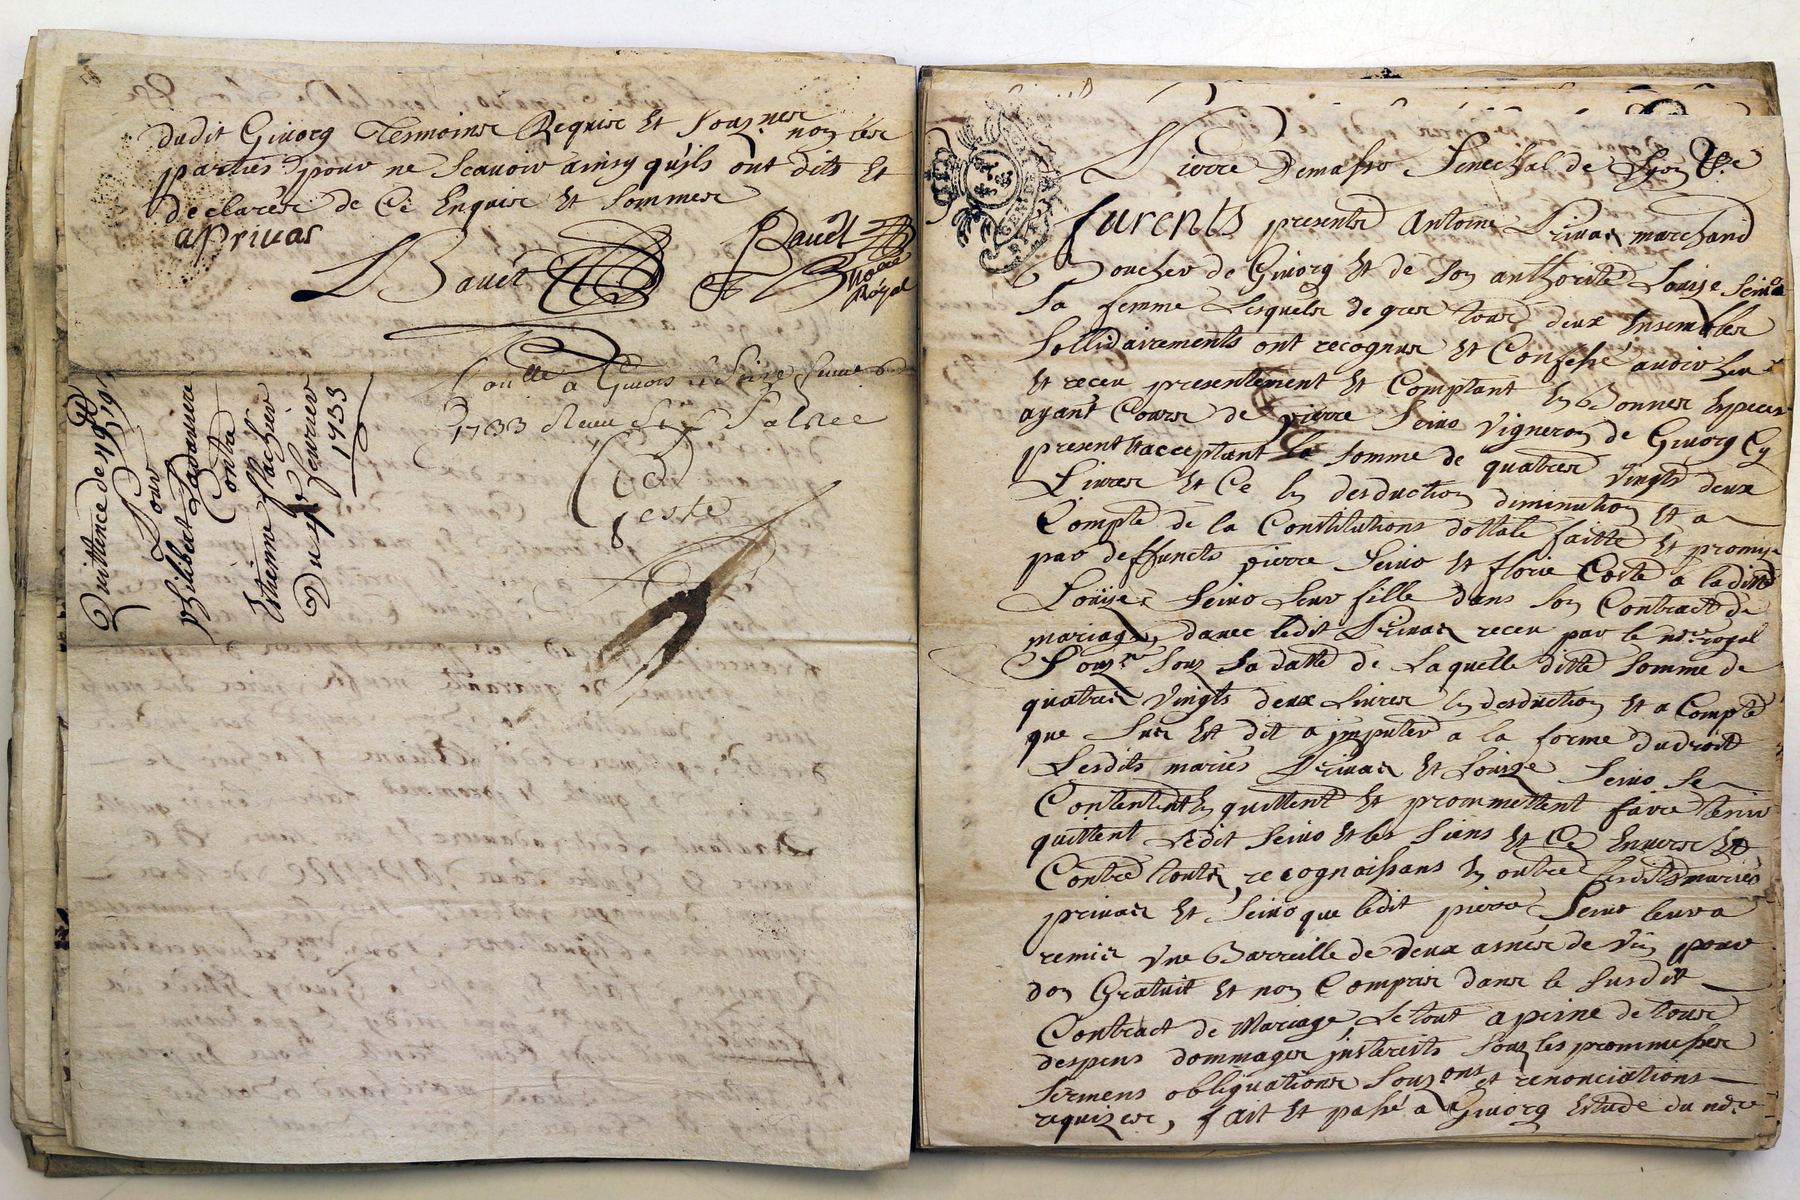 dudit Givorg Tesmoins Requis Et Souz.nez non lés
parties pour ne Scavoir ainsy qu'ils ont dits Et
declarés de Ce Enquis Et Sommés
a privas
Bavét Bavét
Royal
a Givors
1733 Receu Six
Ceste
Quittence de 49
Pour
philibert
Contà
Estienne flachier
Du 4e feurier
1733
Pierre Demasso Senechal de Lyon
furents presents Antoine Privas marchand
Boucher de Givorg Et de Son authorité Louise Seivo
Sa femme Lesquels de gres tous deux Ensembles
Sollidairements ont recognus Et Confessé avoir heu
Et receu presentement Et Comptant En Bonnes Especes
ayant Cours de pierre Seivo Vigneron de Givorg Cy
present Et acceptant la Somme de quatres Vingts deux
Livres Et Ce En desduction diminution Et a
Compte de la Constitutions dottale faitte Et promise
par deffuncts pierre Seivo Et florie Coste a laditte
Louise Seivo Leur fille dans Son Contract de
mariage davec ledit Privas receu par le no.re royal
Souz.né Souz Sa datte de Laquelle ditte Somme de
quatres Vingts deux Livres En desduction Et a Compte
que Sus Est dit a jmputer a la forme du droit
Lesdits mariés Privas Et Louise Seivo Se
Contentent En quittent Et prommettent faire tenir
quittent Ledit Seivo Et les Siens Et Ce Envers Et
Contre touts, recognaissans En outre lesdits mariés
privas Et Seivo que ledit pierre Seivo leur a
remis Vne Barreille de deux asnés de Vin pour
don Gratuit Et non Compris dans le Susdit
Contract de Mariage, Le tout a peine de tous
despens dommages jnterests Souz les prommesses
Sermens obliguations Souz.ons et renonciations
requises, fait Et passé a Givorg Estude du no.re